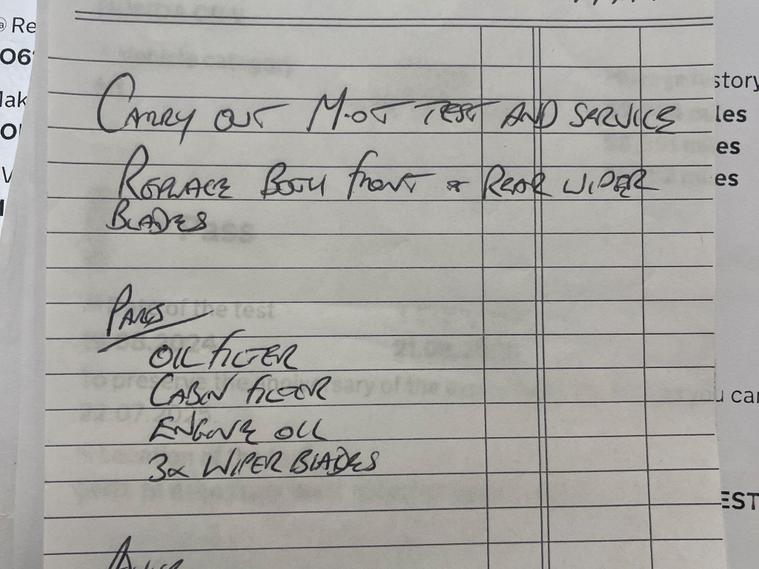 Re
O6
CARRY OUT M.OT TEST AND SERVICE
REPLACE BOTH FRONT & REAR WIPER
BLADES
PARTS
OIL FILTER
CABIN FILTER
ENGINE OIL
3x WIPER BLADES
story
les
es
es
Pass
of the test
u can
EST